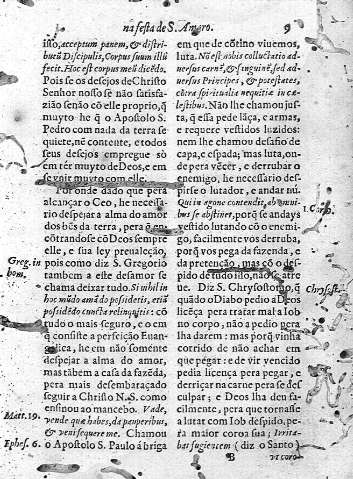 na festa de S. Amaro.
9
isso, acceptum panem, & distri-
buēs Discipulis, Corpus suum illū
fecit. Hoc est corpus meū dicēdo.
Pois se os desejos de Christo
Senhor nosso se não satisfa-
zião senão cō elle proprio, q̃
muyto he q̃ o Apostolo S.
Pedro com nada da terra se
quiete, nē contente, e todos
seus desejos empregue só
em tēr muyto de Deos, e em
se vnir muyto com elle.
Por onde dado que pera
alcançar o Ceo, he necessa-
rio despejar a alma do amor
dos bēs da terra, pera
cōtrandose cō Deos sempre
elle, e sua ley prevaleção,
pois como diz S. Gregorio
tambem a este desamor se
chama deixar tudo. Si nihil in
hoc mūdo amādo possideris, etiā
possidēdo cuncta relinquitis: cō
tudo o mais seguro, e o em
q̃ consiste a perfeição Euan-
gelica, he em não somente
despejar a alma do amor,
mas tābem a casa da fazēda,
pera mais desembaraçado
seguir a Christo N. S. como
ensinou ao mancebo. Vade,
vende quæ habes, da pauperibus,
& veni sequere me. Chamou
o Apostolo S. Paulo á briga
Greg. in
hom.
Matt. 19.
Ephes. 6.
em que de cōtino viuemos,
luta. Nō est nobis colluctatio ad-
versus carnē, & sanguinē, sed ad-
versus Principes, & potestates,
cōtra spiritualia nequitiæ in cæ-
lestibus. Não lhe chamou jus-
ta, q̃ essa pede lāça, e armas,
e requere vestidos luzidos:
nem lhe chamou desafio de
capa, e espada; mas luta, on-
de pera vēcer, e derrubar o
enemigo, he necessario des-
pirse o lutador, e andar nú.
Qui in agone contendit, ab omni-
bus se abstinet, porq̃ se andays
vestido lutando cō o enemi-
go, facilmente vos derruba,
porq̃ vos pega da fazenda, e
da pretenção, mas cō o des-
pido de tudo isto, não se atre
ue. Diz S. Chrysostomo, q̃
quādo o Diabo pedio a Deos
licēça pera tratar mal a Iob
no corpo, não a pedio pera
lha darem: mas porq̃ vinha
corrido de não achar em
que pegar: e de vir vencido
pedia licença pera pegar, e
derriçar na carne pera se des
culpar; e Deos lha deu fa-
cilmente, pera que tornasse
a lutar com Iob despido, pe-
ra maior coroa sua; Irrita-
bat fugientem (diz o Santo)
1. Cor. 9.
Chrysost.
B
vt coro-